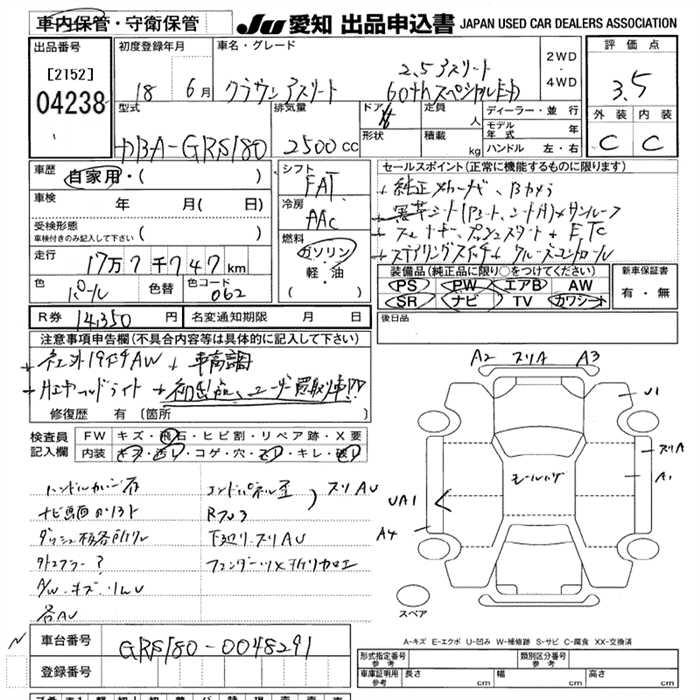 車内保管・守衛保管
JU 愛知 出品申込書 JAPAN USED CAR DEALERS ASSOCIATION
出品番号
[2152]
04238
初度登録年月
18 6月
車名・グレード
クラウンアスリート
2.5アスリート
60thスペシャルED
2WD
・
4WD
評価点
3.5
外装 内装
C C
型式
DBA-GRS180
排気量
2500cc
ドア
形状
定員 人
積載 kg
ディーラー・並行
モデル年式 年
ハンドル 左・右
車歴
自家用・( )
車検 年 月( 日)
受検形態
車検付きのみ記入して下さい ( )
走行
17万7千747km
色
パール
色替
色コード
062
シフト
FAT
冷房
AAC
燃料
ガソリン
・
軽・油
( )
セールスポイント(正常に機能するものに限ります)
+ 純正メーカーナビ、Bカメラ
+ スマートキー、プッシュスタート + ETC
+ ステアリングスイッチ + クルーズコントロール
装備品(純正品に限り○をつけてください)
PS PW エアB AW
SR ナビ TV カワシート
新車保証書
有・無
R券 14,350円
名変通知期限 月 日
後日品
注意事項申告欄(不具合内容等は具体的に記入して下さい)
+ 社外19吋AW + 車高調
+ 社外ヘッドライト + 初出品、ユーザー買取り車!!
修復歴 有 [箇所 ]
検査員記入欄
FW キズ・飛石・ヒビ割・リペア跡・X要
内装 キズ・汚レ・コゲ・穴・スレ・キレ・破レ
エンドパネル歪
スリAU
下廻り・スリAU
各AU
A2 スリA A3
U1
スリA
A1
UA1
A4
スペア
A-キズ E-エクボ U-凹み W-補修跡 S-サビ C-腐食 XX-交換済
車台番号
GRS180-0048291
登録番号
形式指定番号 参考
類別区分番号 参考
車庫証明用 参考
長さ cm
幅 cm
高さ cm